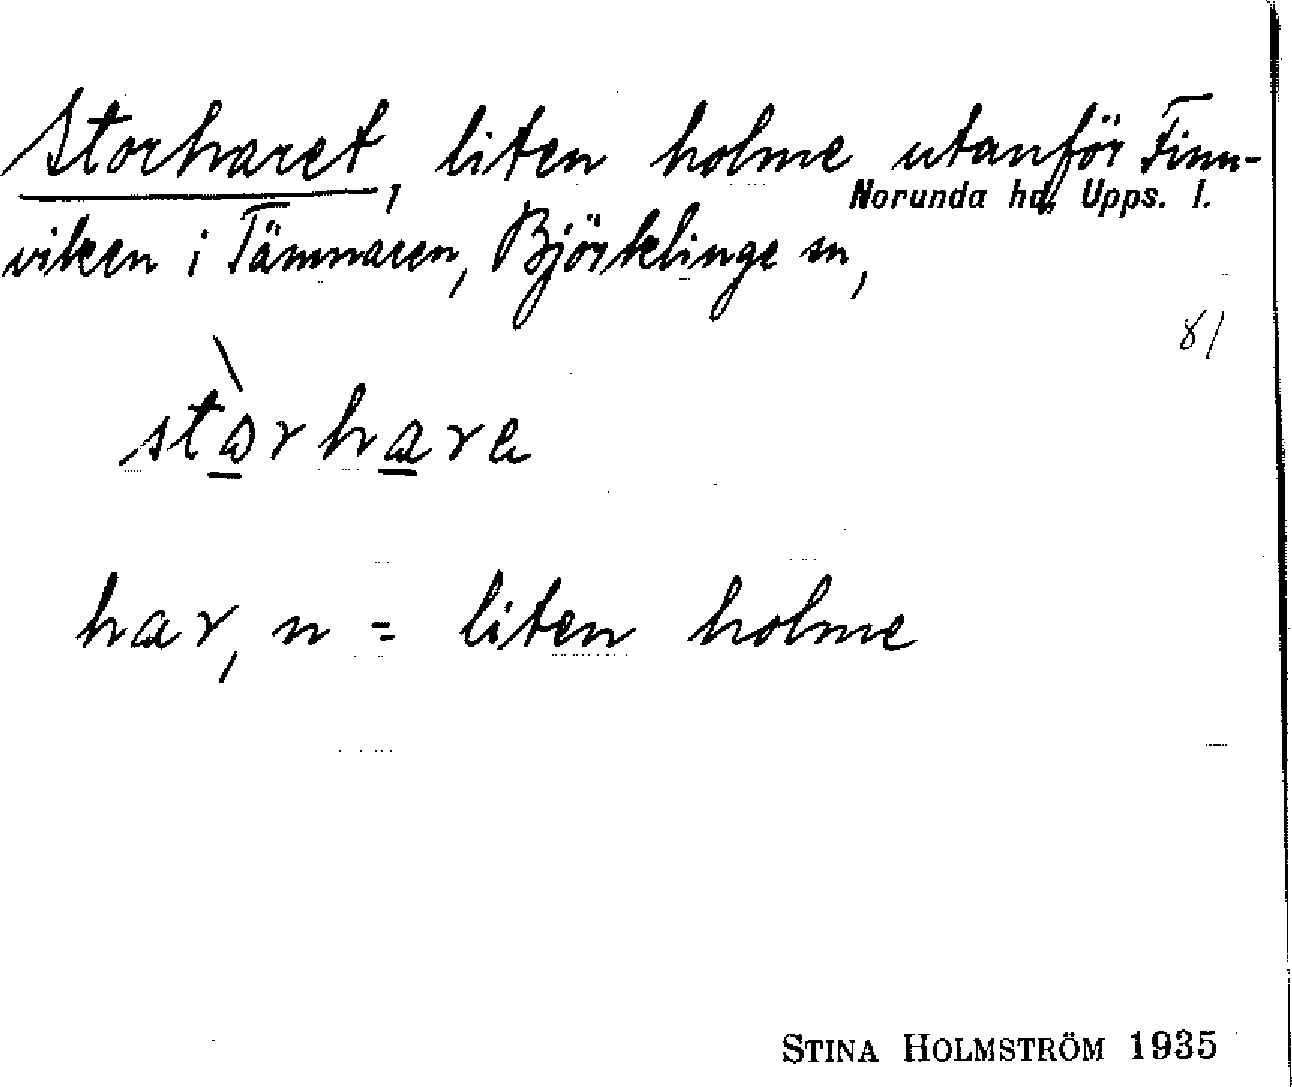 Storharet, liten holme utanför Finn-
Norunda hd, Upps. l.
viken i Tämnaren, Björklinge sn,
81
stòrhare
har, n = liten holme
STINA HOLMSTRÖM 1935